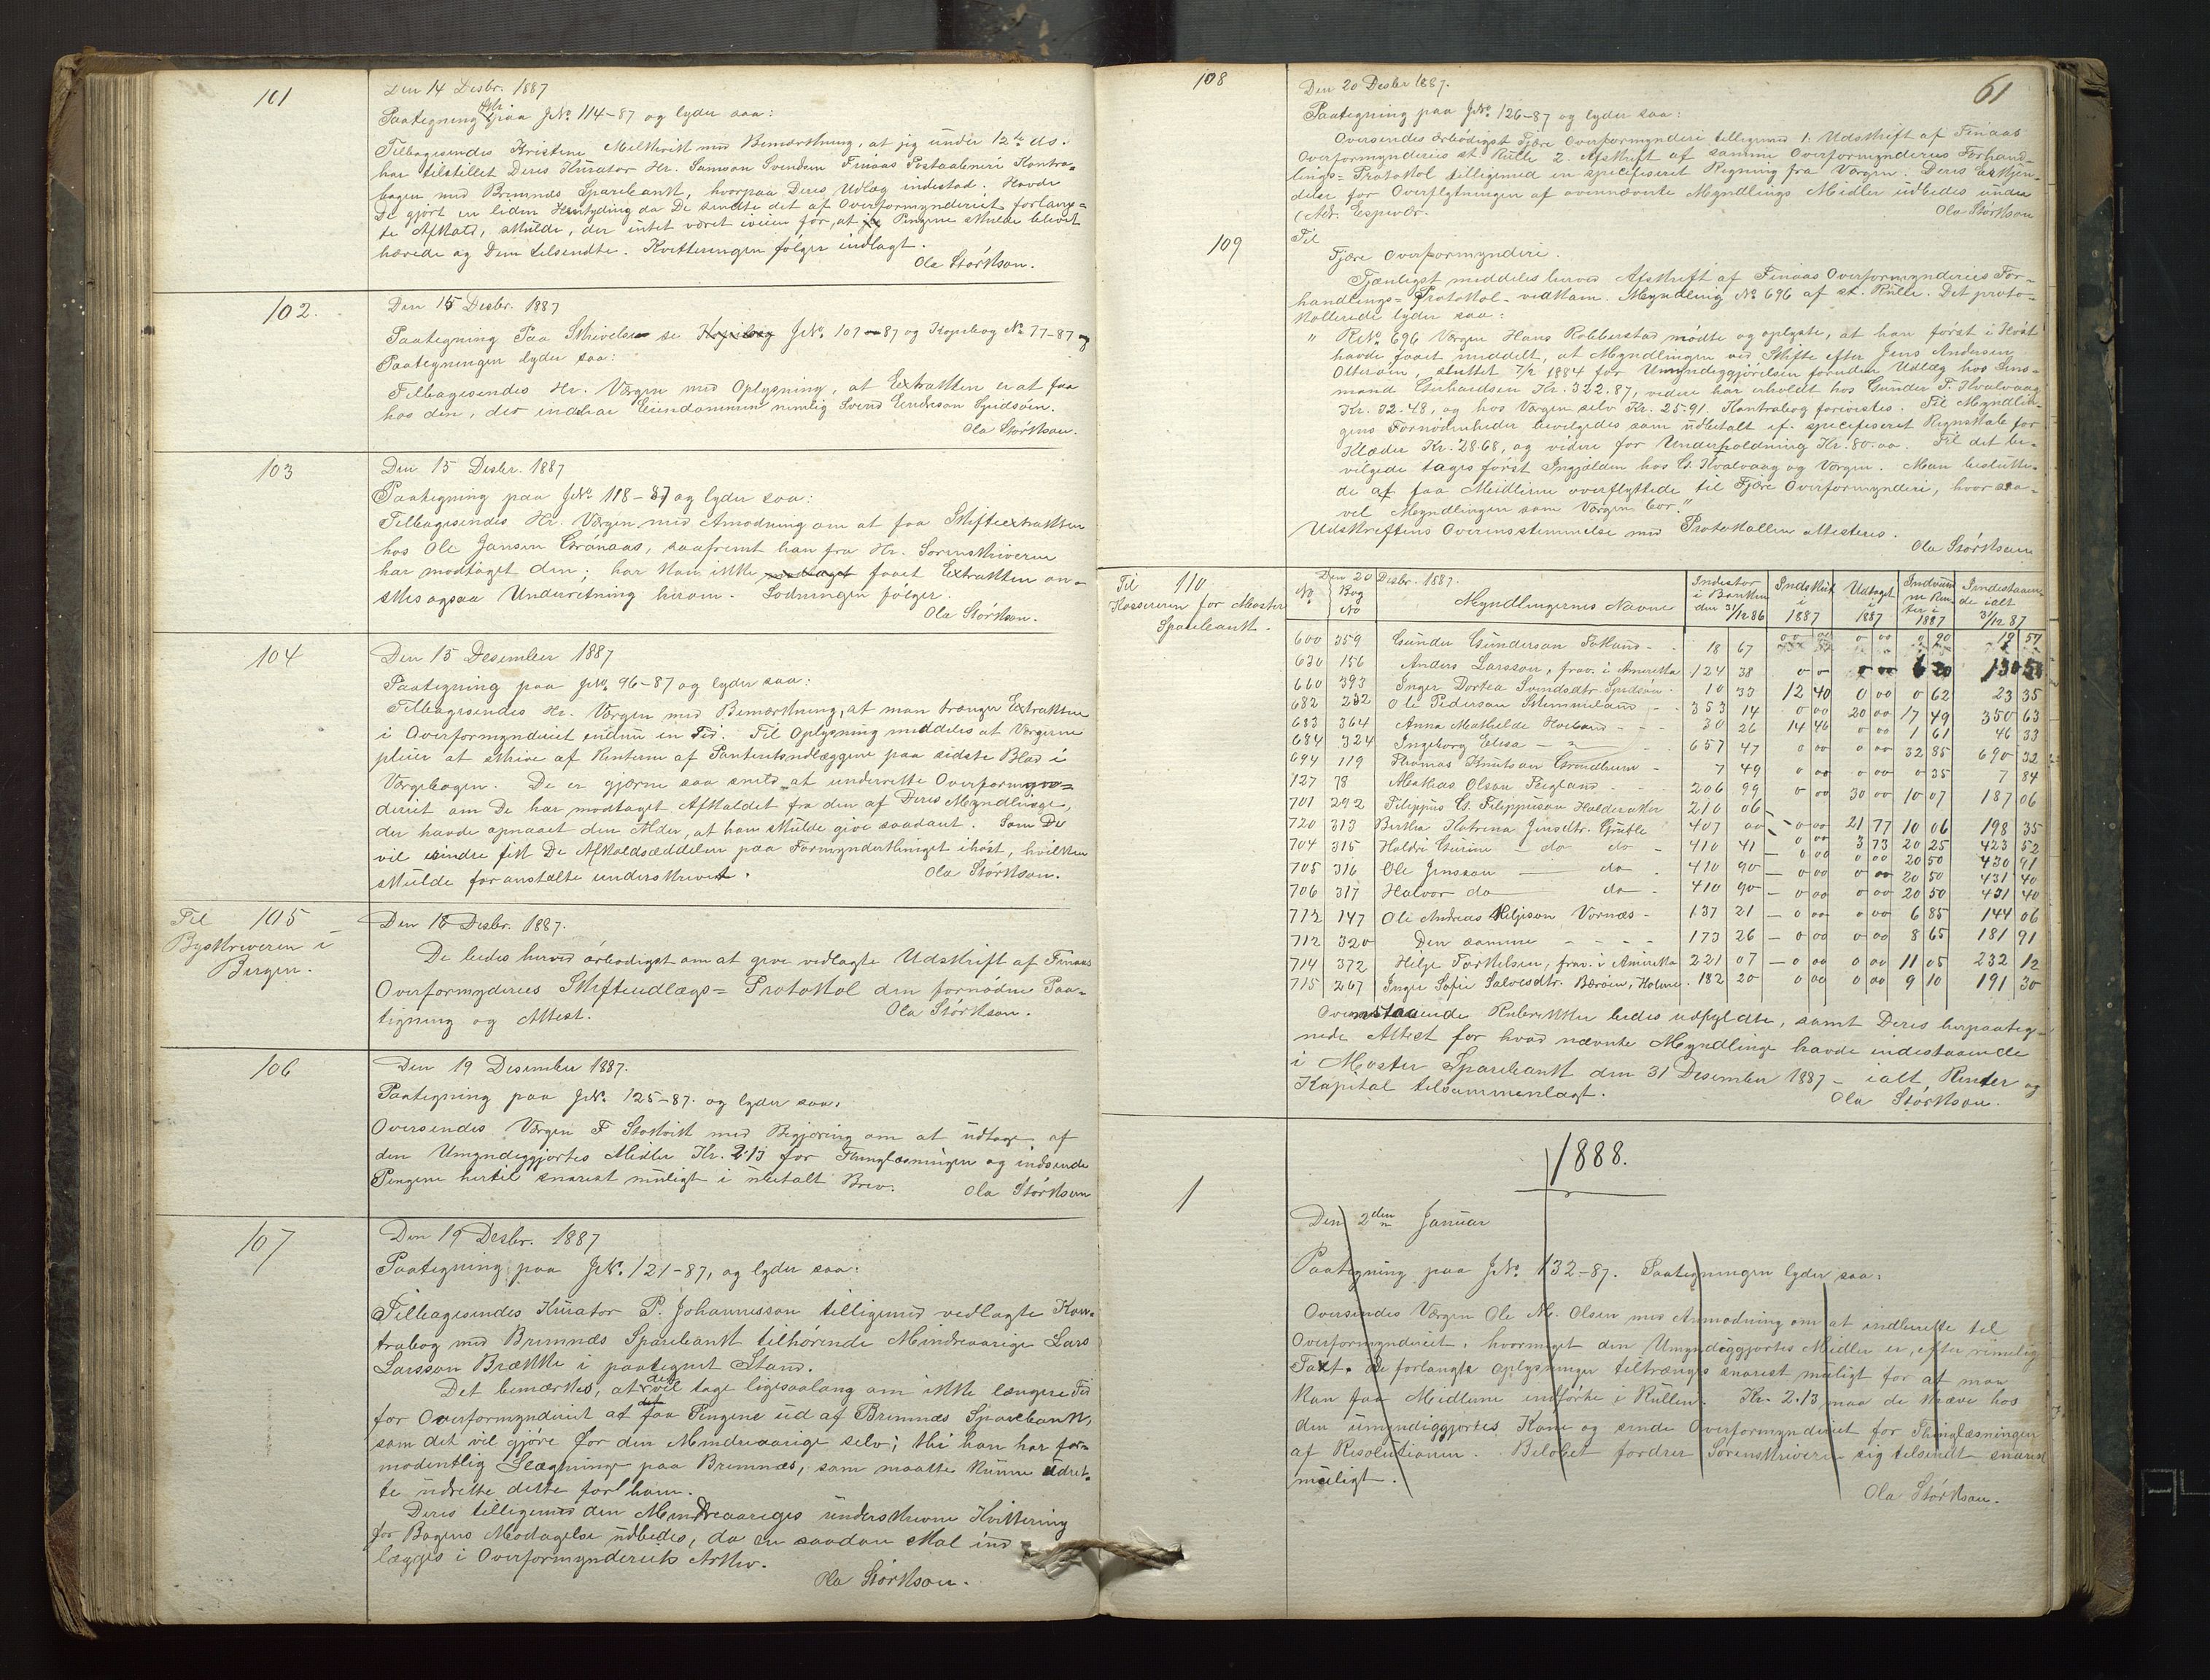 101
Den 14 Desbr. 1887
Paategning paa JNo. 114-87 og lyder saa:
Tilbagesendes Kristine Melkevik med Bemærkning, at jeg under 12te ds.
har tilstillet Deres Kurator Hr. Samson Svendsen Finaas Postaabneri Kontra-
bogen med Bremnæs Sparebank, hvorpaa Deres Udlæg indestod. Havde
De gjort en liden Hentydning da De sendte det af Overformynderiet forlang-
te Afkald, skulde, der intet været iveien for, at Pengene skulde blevet
hævede og Dem tilsendte. Kvitteringen følger indlagt.
Ola Størkson.
102.
Den 15 Desbr. 1887
Paategning Paa Skrivelse se Kopibog JNo. 107-87 og Kopibog No 77-87 og
Paategningen lyder saa:
Tilbagesendes Hr. Værgen med Oplysning, at Extrakten er at faa
hos den, der indehar Eiendommen nemlig Svend Endreson
Ola Størkson.
103
Den 15 Desbr. 1887
Paategning paa JNo. 118-87 og lyder saa:
Tilbagesendes Hr. Værgen med Anmodning om at faa Skifteextrakten
hos Ole Jansen Grønaas, saafremt han fra Hr. Sorenskriveren
har modtaget den; har Han ikke modtaget faaet Extrakten øn-
skes ogsaa Underretning herom. Lodningen følger.
Ola Størkson.
104
Den 15 Desember 1887
Paategning paa JNo. 96-87 og lyder saa:
Tilbagesendes Hr. Værgen med Bemærkning, at man trænger Extrakten
i Overformynderiet endnu en Tid. Til Oplysning meddeles at Værgerne
pleier at skrive af Renterne af Panteudlæggene paa sidste Blad i
Værgebogen. De er gjerne saa snild at underrette Overformyn-
deriet om De har modtaget Afkaldet fra den af Deres Myndlinge,
der havde opnaaet den Alder, at han skulde give saadant. Som De
vil erindre fik De Afkaldsæddelen paa Formynderthinget ihøst, hvilken
skulde foranstalte underskrevet.
Ola Størkson.
Til 105
Byskriveren i
Bergen.
Den 18 Desbr. 1887.
De bedes herved ærbødigst om at give vedlagte Udskrift af Finaas
Overformynderies Skifteudlægs- Protokol den fornødne Paa-
tegning og Attest.
Ola Størkson.
106
Den 19 Desember 1887.
Paategning paa JNo. 125-87. og lyder saa:
Oversendes Værgen F Stokvik med Begjæring om at udtage af
den Umyndiggjortes Midler Kr. 2.13 for Thinglæsningen og indsende
Pengene hertil snarest muligt i ubetalt Brev.
Ola Størkson
107
Den 19 Desbr. 1887
Paategning paa JNo. 121-87, og lyder saa:
Tilbagesendes Kurator P. Johannesson tilligemed vedlagte Kon-
trabog med Bremnæs Sparebank tilhørende Mindreaarige Lars
Larsson Brække i paategnet Stand.
Det bemærkes, at det vil tage ligesaalang om ikke længere Tid
for Overformynderiet at faa Pengene ud af Bremnæs Sparebank,
som det vil gjøre for den Mindreaarige selv; thi han har for-
modentlig Slægtninge paa Bremnæs, som maatte kunne
te udrette dette for ham.
Deres tilligemed den Mindreaariges underskrevne Kvittering
for Bogens Modtagelse udbedes, da en saadan skal ind
lægges i Overformynderiets Arkiv.
Ola Størkson.
61
108
Den 20 Desbr 1887.
Paategning paa JNo. 126-87 og lyder saa:
Oversendes ærbødigst Fjære Overformynderi tilligemed 1. Udskrift af Finaas
Overformynderies st. Rulle 2. Afskrift af samme Overformynderies Forhand-
lings- Protokol tilligemed en specifiseret Regning fra Værgen. Deres Erkjen-
delse for Overflytningen af ovennævnte Myndlings Midler udbedes under
Adr. Espevær.
Ola Størkson
109
Til
Fjære Overformynderi.
Tjenligst meddeles herved Afskrift af Finaas Overformynderies For-
handlings- Protokol - vedkom. Myndling No 696 af st. Rulle. Det proto-
kollerede lyder saa:
" RNo. 696 Værgen Hans Robberstad mødte og oplyste, at han først i Høst
havde faaet meddelt, at Myndlingen ved Skifte efter Jens Andersen
Otterøen, sluttet 7/2 1884 før Umyndiggjørelsen foruden Udlæg hos Lens-
mand Gerhardsen Kr. 322.87, videre har erholdt hos Gunder T. Hvalvaag
Kr. 32.48, og hos Værgen selv Kr. 25.91. Kontrabog forevistes. Til Myndlin-
gens Fornødenheder bevilgedes som udbetalt if. specifiseret Regnskab for
Klæder Kr. 28.68, og videre for Underholdning Kr. 80.00. Til det be-
vilgede tages først Ingjælden hos G. Hvalvaag og Værgen. Man beslutte-
de at faa Midlerne overflyttede til Fjære Overformynderi, hvor saa-
vel Myndlingen som Værgen bor."
Udskriftens Overensstemmelse med Protokollen attesteres.
Ola Størkson
Til 110.
Kassereren for Moster
Sparebank.
Den 20 Desbr. 1887.
No Bog No Myndlingernes Navne Indestod i Banken den 31/12 86 Indskud i 1887 Udtaget i 1887 Indvundne Renter i 1887 Indestaaende ialt 31/12 87
600 359 Gunder Gunderson - - 18 67 00 00 0 00 0 90 19 57
630 156 Anders Larsson, frav. i Amerika 124 38 0 0 0 00 6 20 130 58
660 393 Inger Dortea Svendsdtr. 10 33 12 40 0 00 0 62 23 35
682 232 Ole Pederson - - 353 14 0 00 20 00 17 49 350 63
683 364 Anna Mathilde Hovland - - - 30 26 14 46 0 00 1 61 46 33
684 324 Ingeborg Elisa - " - 657 47 0 00 0 00 32 85 690 32
694 119 Thomas Knutson Grindheim - 7 49 0 00 0 00 0 35 7 84
127 78 Mathias Olson - - 206 99 0 00 30 00 10 07 187 06
701 292 Filippus G. Filippuson 210 06 - 0 00 21 77 10 06 198 35
720 313 Bertha Katrina Jensdtr. 407 00 - 0 00 3 73 20 25 423 52
704 315 Haldri Gurine - do do - 410 41 - 0 00 0 00 20 50 430 91
705 316 Ole Jensson - do - 410 90 - 0 00 0 00 20 50 431 40
706 317 Halvor do do - 410 90 - 0 00 0 00 20 50 431 40
712 147 Ole Andreas Heljeson Vornæs - 137 21 - 0 00 0 00 6 85 144 06
712 320 Den samme - - - - 173 26 - 0 00 0 00 8 65 181 91
714 372 Helje Torkelsen, frav. i Amerika 221 07 - 0 00 0 00 11 05 232 12
715 267 Inger Sofie Salvesdtr. Bærøen, Holme. 182 20 0 00 0 00 9 10 191 30
Ovenstaaende Rubrikker bedes udfyldte, samt Deres herpaateg-
nede Attest for hvad nævnte Myndlinge havde indestaaende
i Moster Sparebank den 31 Desember 1887 - ialt, Renter og
Kapital tilsammenlagt.
Ola Størkson.
1888.
1
Den 2den Januar
Paategning paa JNo. 132-87. Paategningen lyder saa:
Oversendes Værgen Ole M. Olsen med Anmodning om at indberette til
Overformynderiet, hvormeget den Umyndiggjortes Midler er, efter rimelig
Taxt. De forlangte Oplysninger tiltrænges snarest muligt for at man
kan faa Midlerne indførte i Rullen. Kr. 2.13 maa de kræve hos
den umyndiggjortes Kone og sende Overformynderiet for Thinglæsningen
af Resolutionen. Beløbet fordrer Sorenskriveren sig tilsendt snarest
muligt.
Ola Størkson.